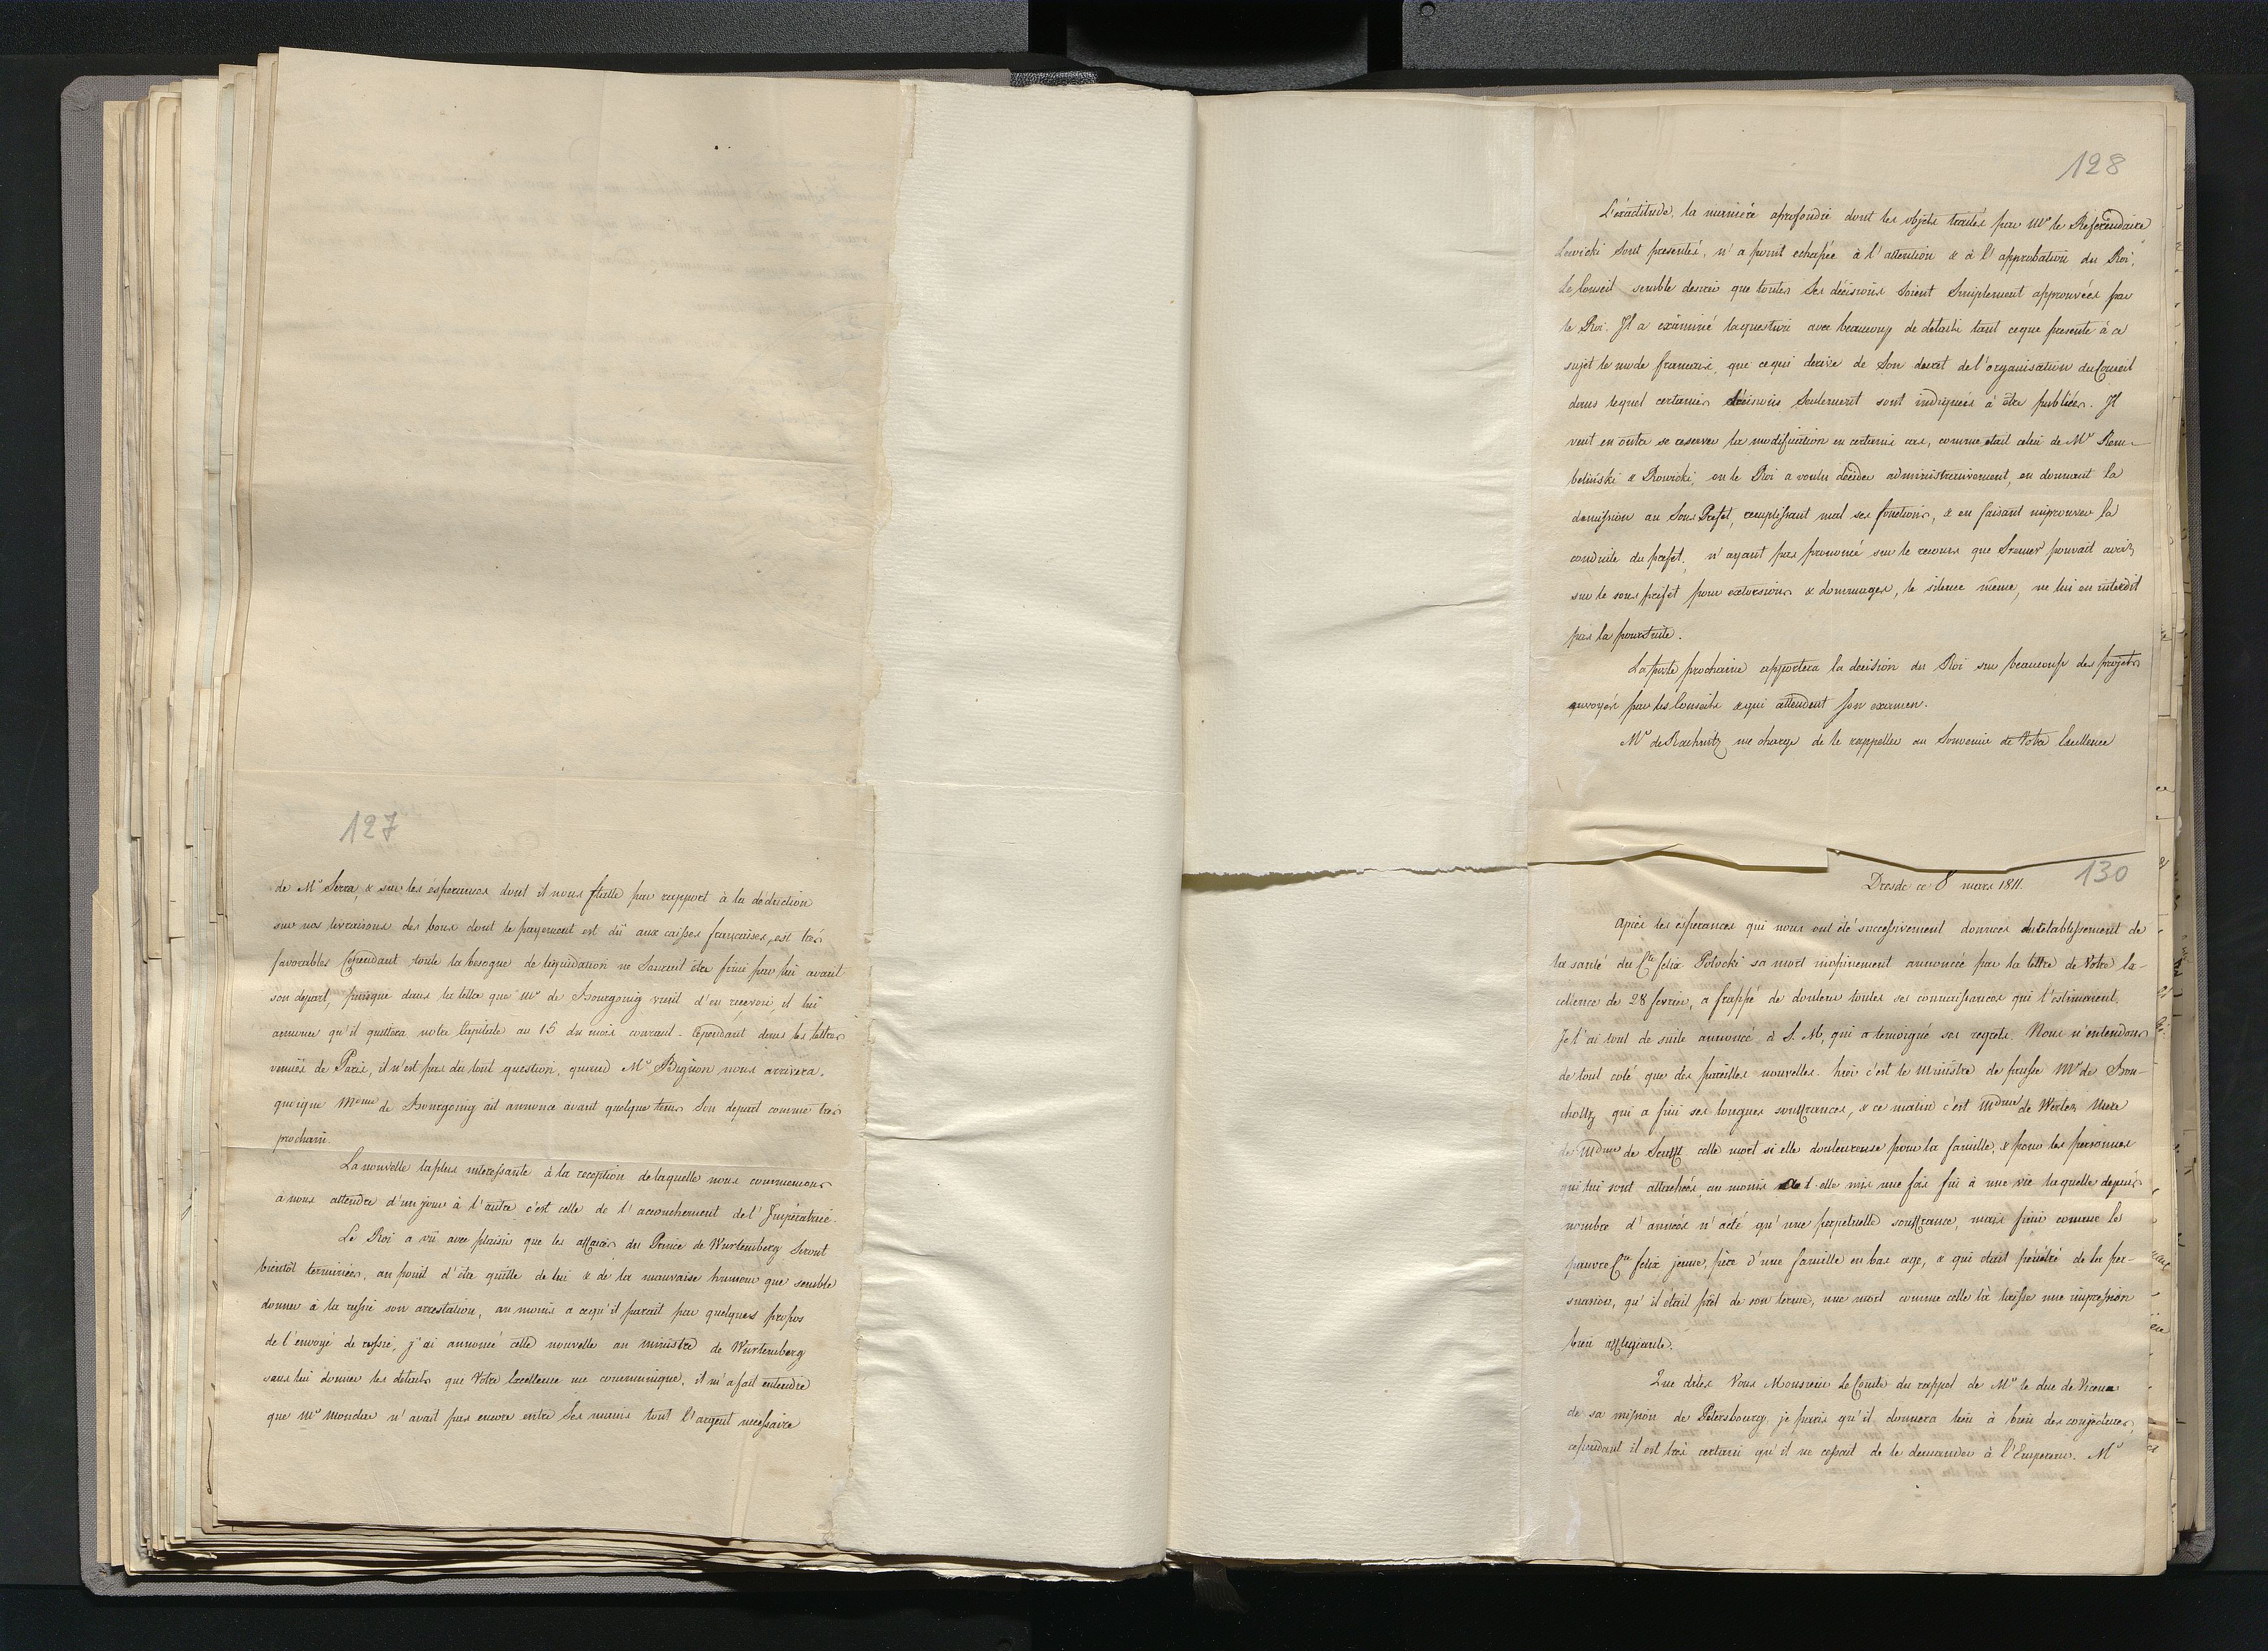 127
de Mr Serra, & sur les ésperances dont il nous flatte par rapport à la déduction
sur nos livraisons des bons dont le payement est dû aux caisses françaises, est très
favorables Cependant toute la besogne de liquidation ne Sauroit être fini par lui avant
son depart, puisque dans la lettre que Mr de Bourgoing vient d'en recevoir, il lui
annonce qu'il quittera notre Capitale au 15 du mois courant - Cependant dans les lettres
venuës de Paris, il n'est pas du tout question, quand Mr Bignon nous arrivera,
quoique Mdme de Bourgoing ait annoncé avant quelque tems Son depart comme très
prochain.
La nouvelle la plus interessante à la reception de laquelle nous commencons
à nous attendre d'un jour à l'autre c'est celle de l'accouchement de l'Impératrice.
Le Roi a vû avec plaisir que les affaires du Prince de Wurtemberg Seront
bientôt terminées, au point d'être quitte de lui & de la mauvaise humeur que semble
donner à la russie son arrestation, au moins a cequ'il parait par quelques propos
de l'envoyé de russie, j'ai annoncé cette nouvelle au ministre de Würtemberg
sans lui donner les details que Votre Excellence me communique, il m'a fait entendre
que Mr Mondler n'avait pas encore entre Ses mains tout l'argent necessaire
128
L'exactitude, la maniere aprofondie dont les objets traités par Mr le Referendaire
Lewicki Sont presentés, n'a point echapée à l'attention & à l'approbation du Roi.
Le Conseil semble desirer que toutes Ses décisions Soient Simplement approuvées par
le Roi. Il a examiné laquestion avec beaucoup de details tant ceque presente à ce
sujet le mode francais, que cequi derive de Son decret de l'organisation du Conseil
dans lequel certaines décisions Seulement sont indiquées à être publiées. Il
veut en outre se reserver la modification en certains cas, comme etait celui de Mr Rem-
belinski & Rowicki, ou le Roi a voulu décider administrativement, en donnant la
demission au Sous Prefet, remplissant mal ses fonctions, & en faisant improuver la
conduite du prefet. n'ayant pas prononcé sur le recours que pouvait avoir
sur le sous prefet pour extorsions & dommages, le silence même, ne lui en interdit
pas la poursuite.
La poste prochaine apportera la decision du Roi sur beaucoup des projets
envoyés par les Conseils & qui attendent Son examen.
Mr de Rachnitz me charge de le rappeller au Souvenir de Votre Excellence
130
Dresde ce 8 mars 1811.
Après les esperances qui nous ont été successivement données du retablissement de
la santé du Cte felix Potocki sa mort inopinement annoncée par la lettre de Votre Ex-
cellence de 28 fevrier, a frappé de douleur toutes ses connaissances qui l'estimaient.
Je l'ai tout de suite annoncé à S. M, qui a temoigné ses regrets. Nous n'entendons
de tout coté que des pareilles nouvelles. hier c'est le Ministre de prusse Mr de Buch-
holtz qui a fini ses longues souffrances, & ce matin c'est Mdme de Werter Mere
de Mdme de Senfft, cette mort si elle douloureuse pour la famille, & pour les personnes
qui lui sont attachées, au moins a-t-elle mis une fois fin à une vie laquelle depuis
nombre d'années n'a été qu'une perpetuelle souffrance, mais finir comme le
pauvre Cte felix jeune, père d'une famille en bas age, & qui etait pénétré de la per-
suasion, qu'il etait prêt de son terme, une mort comme celle là laisse une impression
bien affligeante.
Que dites Vous Monsieur Le Comte du rappel de Mr le duc de Vicence
de sa mission de Petersbourg, je pariés qu'il donnera lieu à bien des conjectures,
cependant il est très certain qu'il ne cessait de le demander à l'Empereur. Mr